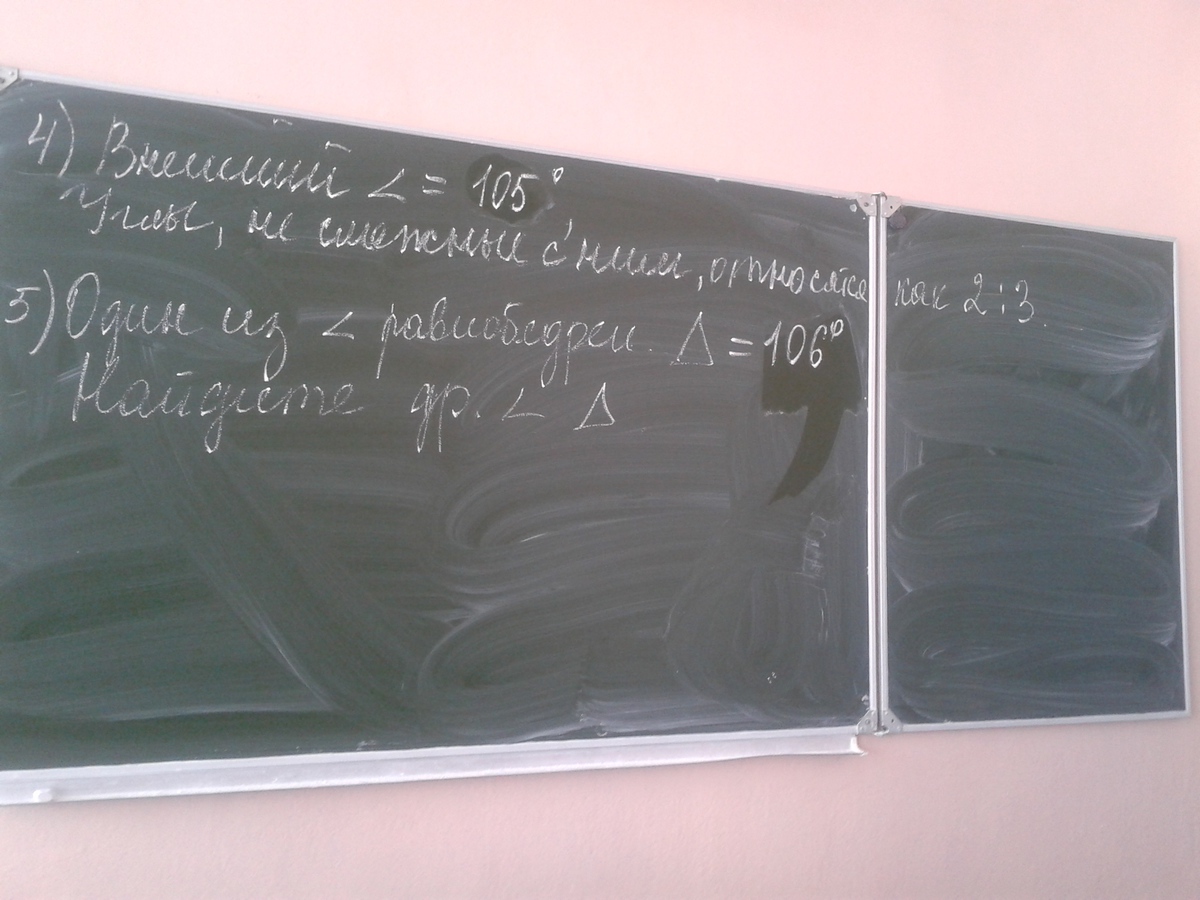 4) Внешний ∠ = 105°
Углы, не смежные с ним, относятся как 2:3.
5) Один из ∠ равнобедрен. Δ = 106°
Найдите др. ∠ Δ